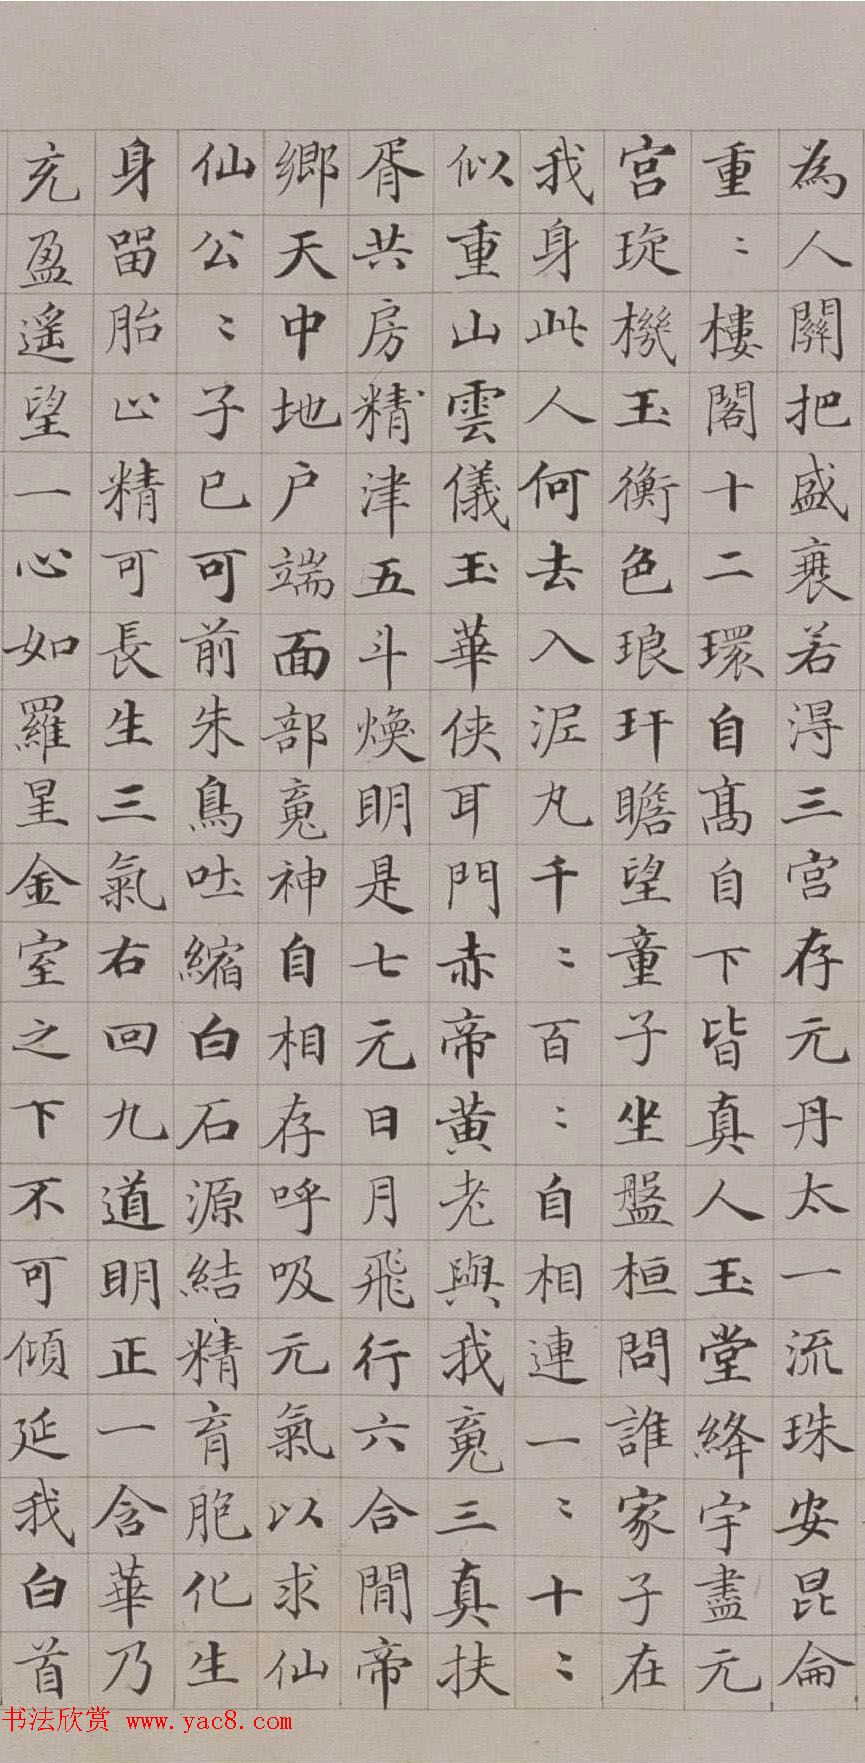 為人關把盛衰若淂三宮存元丹太一流珠安昆侖
重〻樓閣十二環自髙自下皆真人玉堂絳宇盡元
宮琁機玉衡色琅玕瞻望童子坐盤桓問誰家子在
我身此人何去入泥丸千〻百〻自相連一〻十〻
似重山雲儀玉華俠耳門赤帝黃老與我䰟三真扶
胥共房精津五斗煥明是七元日月飛行六合間帝
鄉天中地户端面部䰟神自相存呼吸元氣以求仙
仙公〻子已可前朱鳥吐縮白石源結精育胞化生
身留胎止精可長生三氣右回九道明正一含華乃
充盈遙望一心如羅星金室之下不可傾延我白首
书法欣赏 www.yac8.com